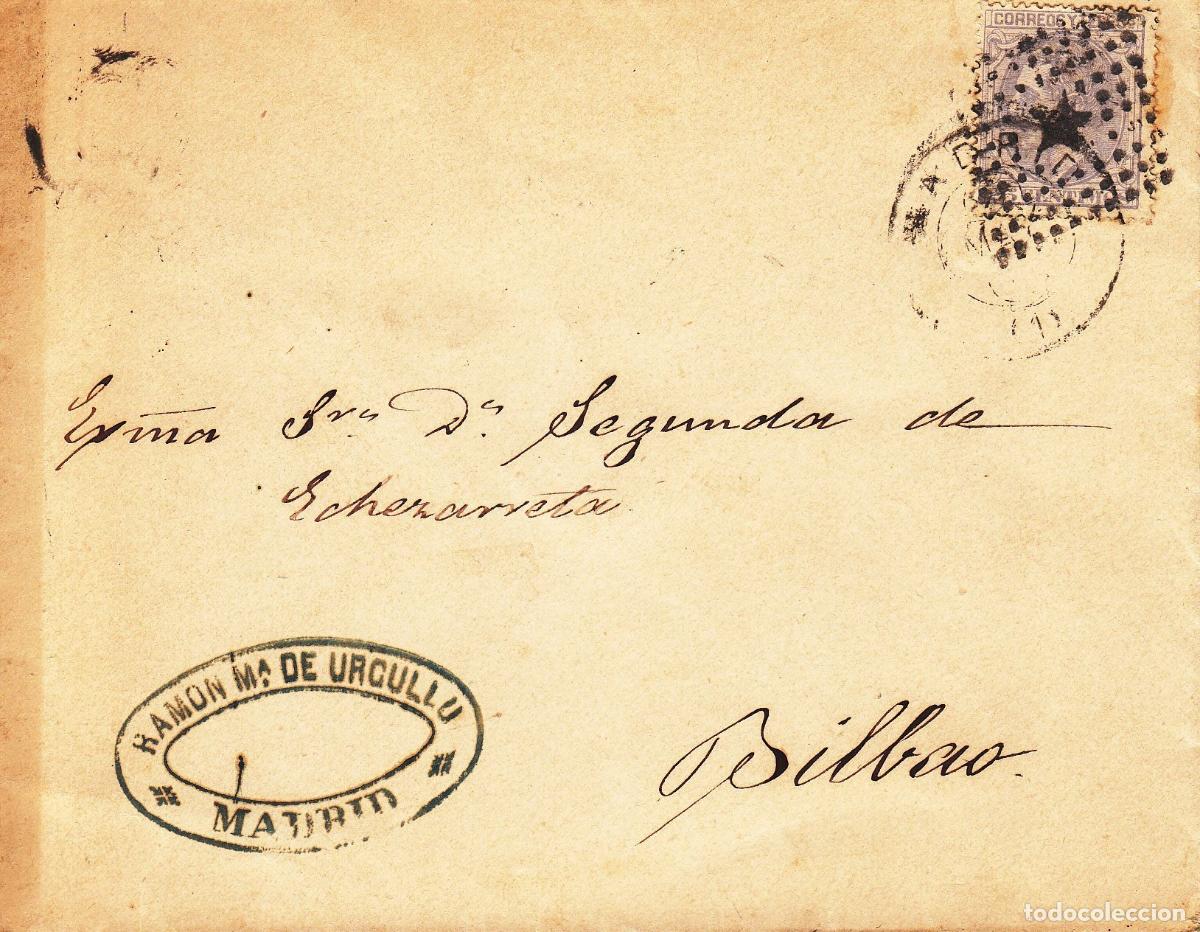 CORREOS Y
MADRID
(1)
Exma Sra Da Segunda de
Echezarreta
RAMON Ma DE URGULLU
MADRID
Bilbao.
todocoleccion